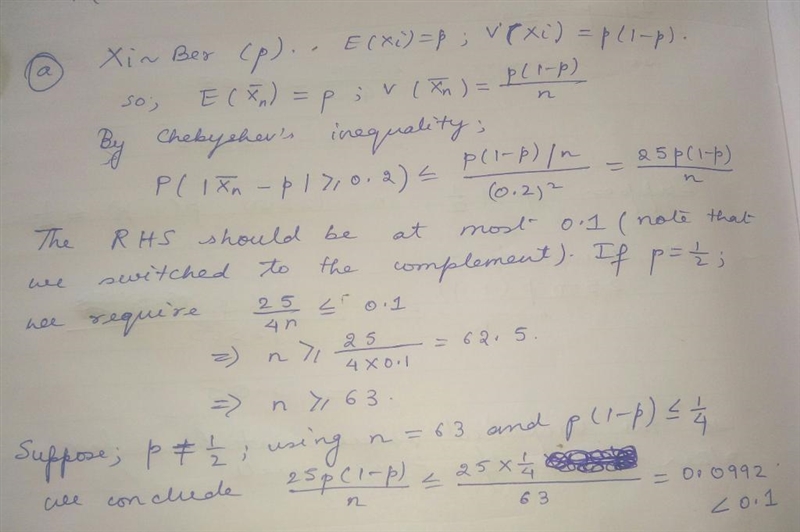 (a) Xi ~ Ber (p). . E(Xi)=p ; V(Xi) = p(1-p).
so; E(X̄n) = p ; V(X̄n) = p(1-p)/n
By Chebyshev's inequality;
P(|X̄n - p| ≥ 0.2) ≤ (p(1-p)/n)/(0.2)² = 25p(1-p)/n
The RHS should be at most 0.1 (note that
we switched to the complement). If p = 1/2;
we require 25/4n ≤ 0.1
⇒ n ≥ 25/(4×0.1) = 62.5.
⇒ n ≥ 63.
Suppose; p ≠ 1/2; using n = 63 and p(1-p) ≤ 1/4
we conclude 25p(1-p)/n ≤ (25 × 1/4)/63 = 0.0992
< 0.1